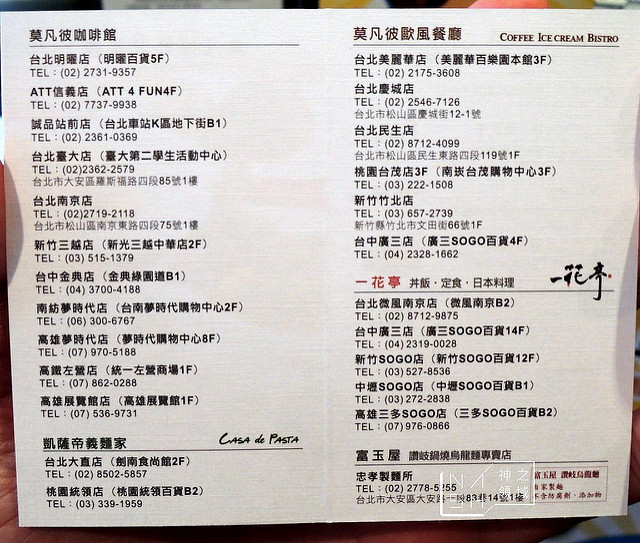 莫凡彼咖啡館
台北明曜店（明曜百貨5F）
TEL：(02) 2731-9357
ATT信義店（ATT 4 FUN4F）
TEL：(02) 7737-9938
誠品站前店（台北車站K區地下街B1）
TEL：(02) 2361-0369
台北臺大店（臺大第二學生活動中心）
TEL：(02)2362-2579
台北市大安區羅斯福路四段85號1樓
台北南京店
TEL：(02)2719-2118
台北市松山區南京東路四段75號1樓
新竹三越店（新光三越中華店2F）
TEL：(03) 515-1379
台中金典店（金典綠園道B1）
TEL：(04) 3700-4188
南紡夢時代店（台南夢時代購物中心2F）
TEL：(06) 300-6767
高雄夢時代店（夢時代購物中心8F）
TEL：(07) 970-5188
高鐵左營店（統一左營商場1F）
TEL：(07) 862-0288
高雄展覽館店（高雄展覽館1F）
TEL：(07) 536-9731
凱薩帝義麵家 CASA de PASTA
台北大直店（劍南食尚館2F）
TEL：(02) 8502-5857
桃園統領店（桃園統領百貨B2）
TEL：(03) 339-1959
莫凡彼歐風餐廳 COFFEE ICE CREAM BISTRO
台北美麗華店（美麗華百樂園本館3F）
TEL：(02) 2175-3608
台北慶城店
TEL：(02) 2546-7126
台北市松山區慶城街12-1號
台北民生店
TEL：(02) 8712-4099
台北市松山區民生東路四段119號1F
桃園台茂店3F（南崁台茂購物中心3F）
TEL：(03) 222-1508
新竹竹北店
TEL：(03) 657-2739
新竹縣竹北市文田街66號1F
台中廣三店（廣三SOGO百貨4F）
TEL：(04) 2328-1662
一花亭 丼飯．定食．日本料理 一花亭
台北微風南京店（微風南京B2）
TEL：(02) 8712-9875
台中廣三店（廣三SOGO百貨14F）
TEL：(04) 2319-0028
新竹SOGO店（新竹SOGO百貨12F）
TEL：(03) 527-8536
中壢SOGO店（中壢SOGO百貨B1）
TEL：(03) 272-2838
高雄三多SOGO店（三多SOGO百貨B2）
TEL：(07) 976-0866
富玉屋 讚岐鍋燒烏龍麵專賣店
忠孝製麵所
TEL：(02) 2778-5255
台北市大安區大安路一段83巷14號1樓
富玉屋 讚岐烏龍麵
自家製麵
不含防腐劑、添加物
神之領域